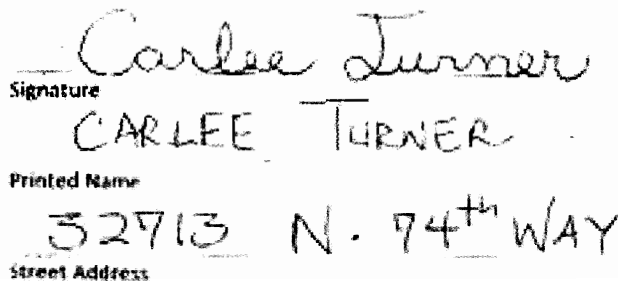 Carlee Turner
Signature
CARLEE TURNER
Printed Name
32713 N. 74th WAY
Street Address